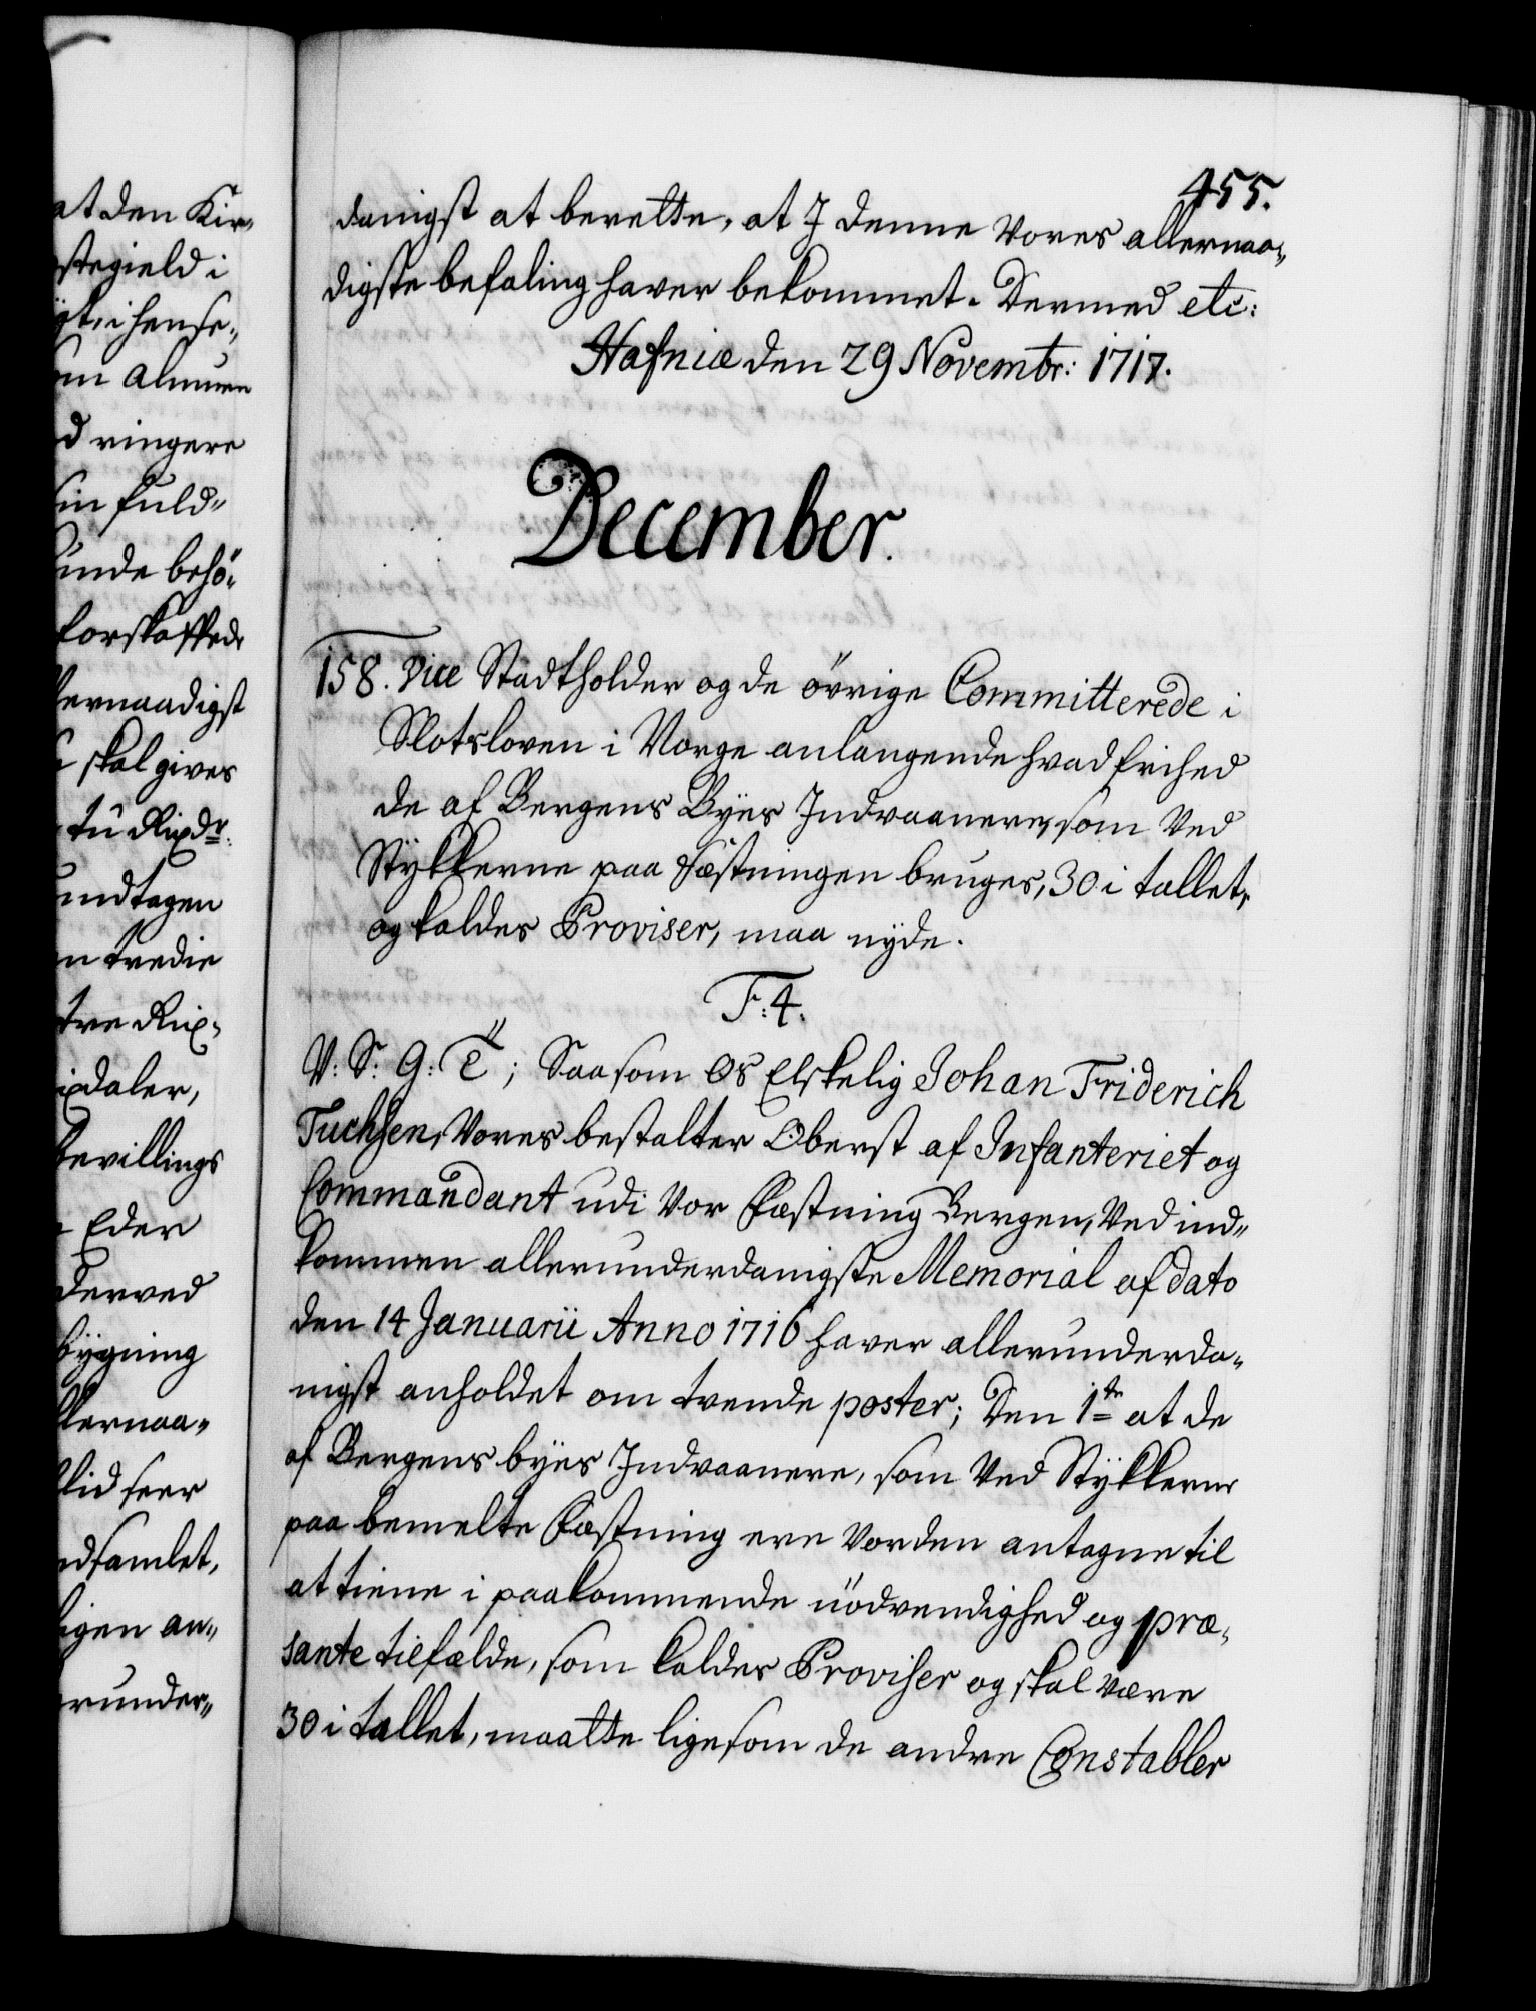 at den Kir-
stegield i
i hense-
om Almuen
d ringere
sin fuld-
ünde behö-
forskaffede
lernaadigst
skal gives
tü Rixdr.
undtagen
n tredie
tre Rix-
ixdaler,
bevillings
Eder
derved
bÿgning
lernaa-
lid seer
dsamlet,
igen an-
runder-
455.
danigst at berette, at I denne Vores allernaa-
digste befaling haver bekommet. Dermed etc:
Hafniæ den 29 Novembr: 1717.
December.
158. Vice Stadtholder og de övrige Committerede i
Slotsloven i Norge anlangende hvad frihed
de af Bergens Bÿes Indvaanere, som Ved
Stÿkkerne paa Fæstningen bruges, 30 i tallet,
og kaldes Proviser, maa nÿde.
F: 4.
V: S: G: T; Saasom Os Elskelig Johan Friderich
Tuchsen, Vores bestalter Oberst af Infanteriet og
Commandant udi Vor Fæstning Bergen, Ved ind-
kommen allerunderdanigste Memorial af dato
den 14 Januarii Anno 1716 haver allerunderda-
nigst anholdet om trende poster; Den 1te at de
af Bergens bÿes Indvaanere, som Ved Stÿkkerne
paa bemelte Fæstning ere Vorden antagne til
at tiene i paakommende nödvendighed og præ-
sante tilfælde, som kaldes Proviser og skal være
30 i tallet, maatte ligesom de andre Constabler